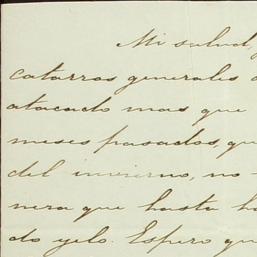 Mi salud,
catarros generales
atacado mas que
meses pasados, qu
del invierno, no
nera que hasta h
do yelo. Espero qu